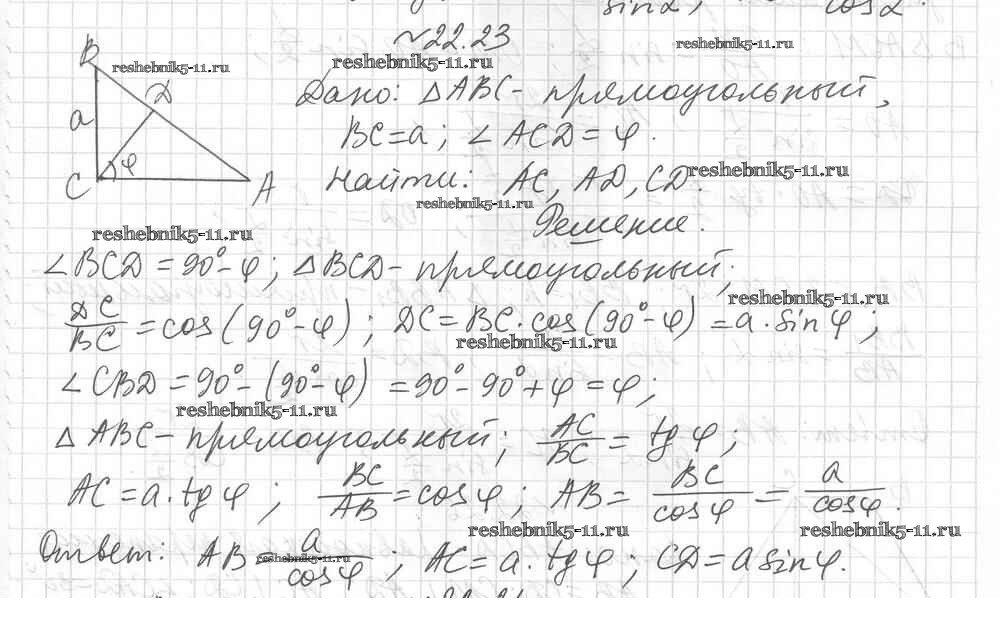 sin α, cos α
~22.23
reshebnik5-11.ru
B reshebnik5-11.ru
reshebnik5-11.ru
Дано: △ABC - прямоугольный,
D
a
BC = a; ∠ACD = φ.
φ
C A
Найти: AC, AD, CD. reshebnik5-11.ru
reshebnik5-11.ru
Решение.
reshebnik5-11.ru
∠BCD = 90° - φ; △BCD - прямоугольный;
reshebnik5-11.ru
DC/BC = cos(90° - φ); DC = BC · cos(90° - φ) = a · sin φ;
reshebnik5-11.ru
∠CBD = 90° - (90° - φ) = 90° - 90° + φ = φ;
reshebnik5-11.ru
△ABC - прямоугольный; AC/BC = tg φ;
AC = a · tg φ; BC/AB = cos φ; AB = BC/cos φ = a/cos φ.
reshebnik5-11.ru reshebnik5-11.ru
Ответ: AB = a/cos φ; AC = a · tg φ; CD = a sin φ.
reshebnik5-11.ru